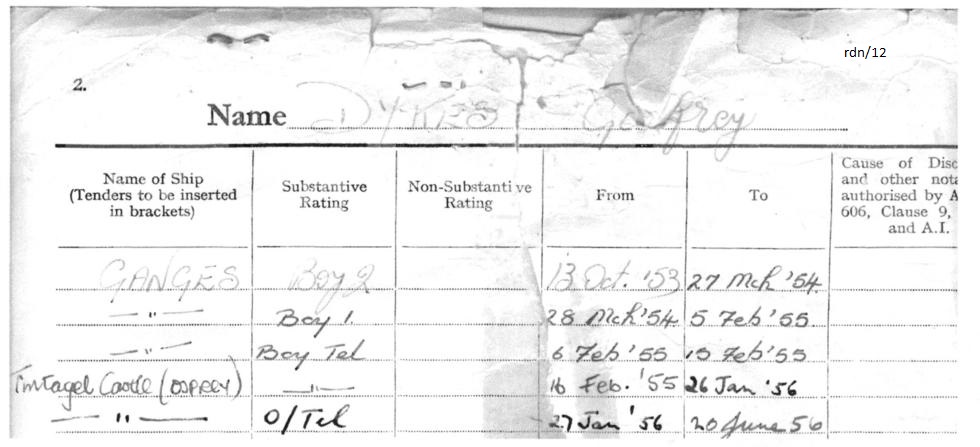 rdn/12
2.
Name DYKES Godfrey
Name of Ship (Tenders to be inserted in brackets) Substantive Rating Non-Substantive Rating From To Cause of Disc and other nota authorised by A 606, Clause 9, and A.I.
GANGES Boy 2 13 Oct. '53 27 Mch '54.
— " — Boy 1. 28 Mch '54. 5 Feb '55.
— " — Boy Tel 6 Feb '55 15 Feb '55
Tintagel Castle (OSPREY) — " — 16 Feb. '55 26 Jan '56
— " — O/Tel 27 Jan '56 20 June 56